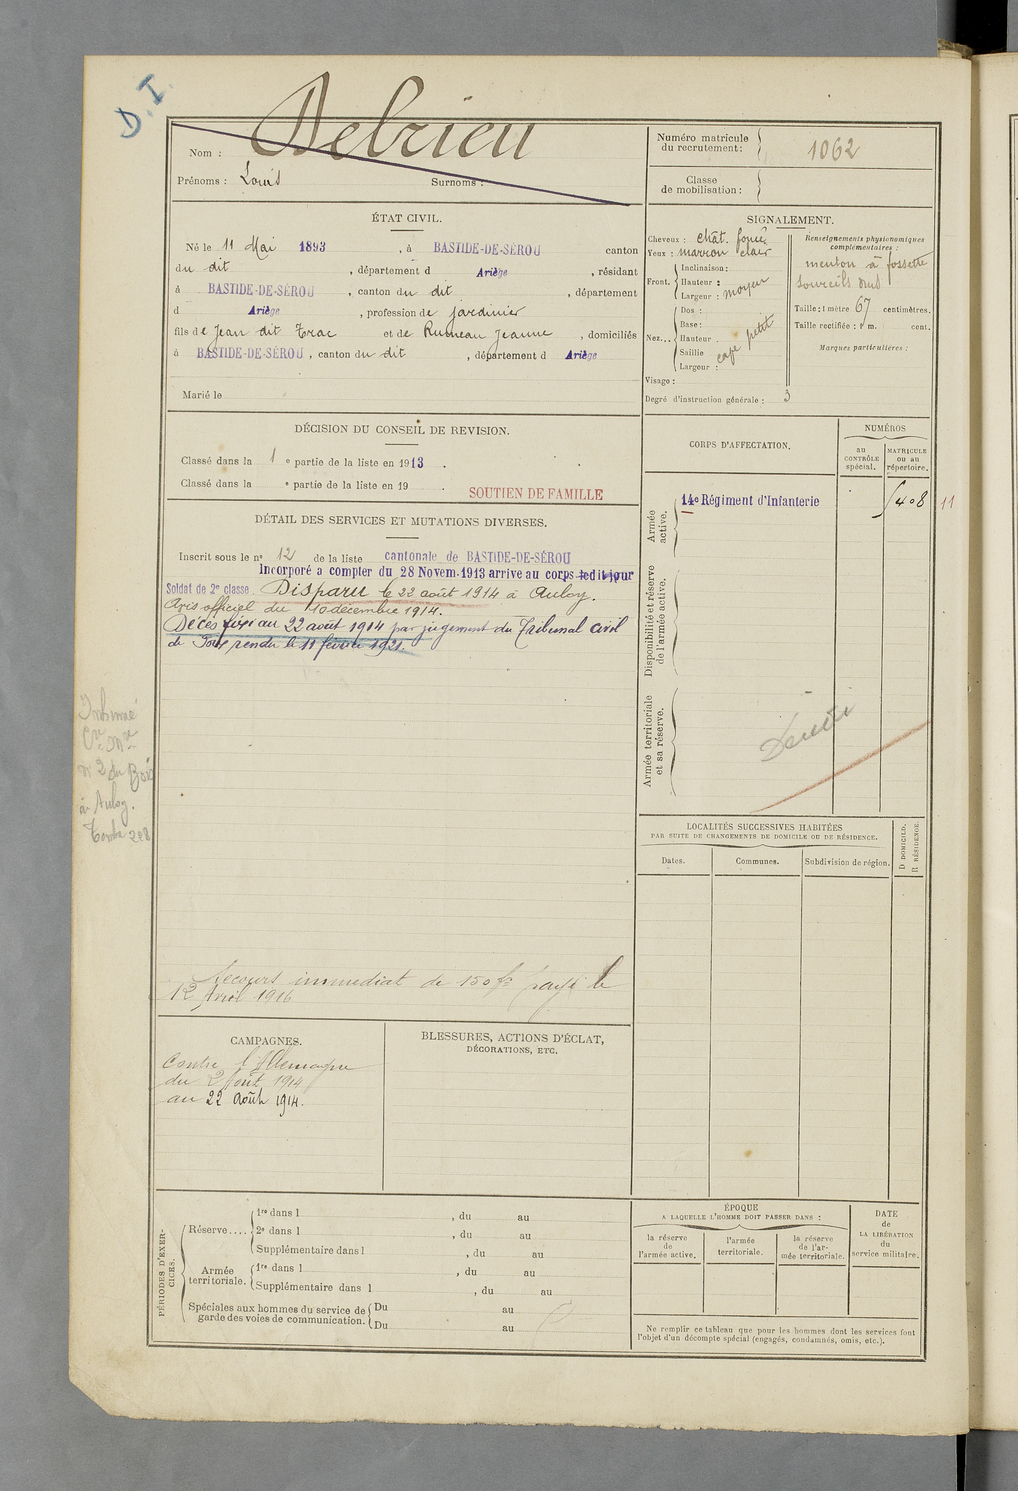 D.I.
Nom : Delrieu
Prénoms : Louis Surnoms :
Numéro matricule du recrutement : 1062
Classe de mobilisation :
ÉTAT CIVIL.
Né le 11 Mai 1893, à BASTIDE-DE-SÉROU canton
du dit, département d Ariège, résidant
à BASTIDE-DE-SÉROU, canton du dit, département
d Ariège, profession de jardinier
fils de Jean dit Trac et de Rumeau Jeanne, domiciliés
à BASTIDE-DE-SÉROU, canton du dit, département d Ariège
Marié le
SIGNALEMENT.
Cheveux : chât. foncé
Yeux : marron clair
Front. Inclinaison :
Hauteur :
Largeur : moyen
Nez... Dos :
Base :
Hauteur .
Saillie
Largeur :
petit
Visage :
Degré d'instruction générale : 3
Renseignements physionomiques
complémentaires :
menton à fossette
sourcils
Taille : 1 mètre 67 centimètres.
Taille rectifiée : 1 m. cent.
Marques particulières :
DÉCISION DU CONSEIL DE REVISION.
Classé dans la 1 e partie de la liste en 1913.
Classé dans la e partie de la liste en 19
SOUTIEN DE FAMILLE
DÉTAIL DES SERVICES ET MUTATIONS DIVERSES.
Inscrit sous le n° 12 de la liste cantonale de BASTIDE-DE-SÉROU
Incorporé a compter du 28 Novem. 1913 arrive au corps ledit jour
Soldat de 2e classe Disparu le 22 août 1914 à Anloy.
Avis officiel du 10 décembre 1914.
Décès fixé au 22 août 1914 par jugement du Tribunal Civil
de Foix rendu le 11 février 1921.
Inhumé
Cre Mre
n° 2 du Bois
à Anloy.
Tombe 228
Secours immédiat de 150 fs payé le
12 Avril 1916
CORPS D'AFFECTATION.
NUMÉROS
au CONTRÔLE spécial.
MATRICULE ou au répertoire.
Armée active.
14e Régiment d'Infanterie
408
11
Disponibilité et réserve de l'armée active.
Armée territoriale et sa réserve.
LOCALITÉS SUCCESSIVES HABITÉES
PAR SUITE DE CHANGEMENTS DE DOMICILE OU DE RÉSIDENCE.
Dates. Communes. Subdivision de région.
D DOMICILE.
R RÉSIDENCE.
CAMPAGNES.
Contre l'Allemagne
du 2 Août 1914
au 22 Août 1914.
BLESSURES, ACTIONS D'ÉCLAT,
DÉCORATIONS, ETC.
PÉRIODES D'EXERCICES.
Réserve.... 1re dans l , du au
2e dans l , du au
Supplémentaire dans l , du au
Armée territoriale. 1re dans l , du au
Supplémentaire dans l , du au
Spéciales aux hommes du service de garde des voies de communication. Du au
Du au
ÉPOQUE
A LAQUELLE L'HOMME DOIT PASSER DANS :
la réserve de l'armée active.
l'armée territoriale.
la réserve de l'armée territoriale.
DATE de LA LIBÉRATION du service militaire.
Ne remplir ce tableau que pour les hommes dont les services font
l'objet d'un décompte spécial (engagés, condamnés, omis, etc.).